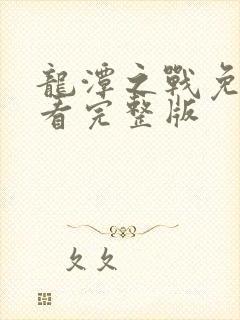 龍潭之戰免
看完整版
久久